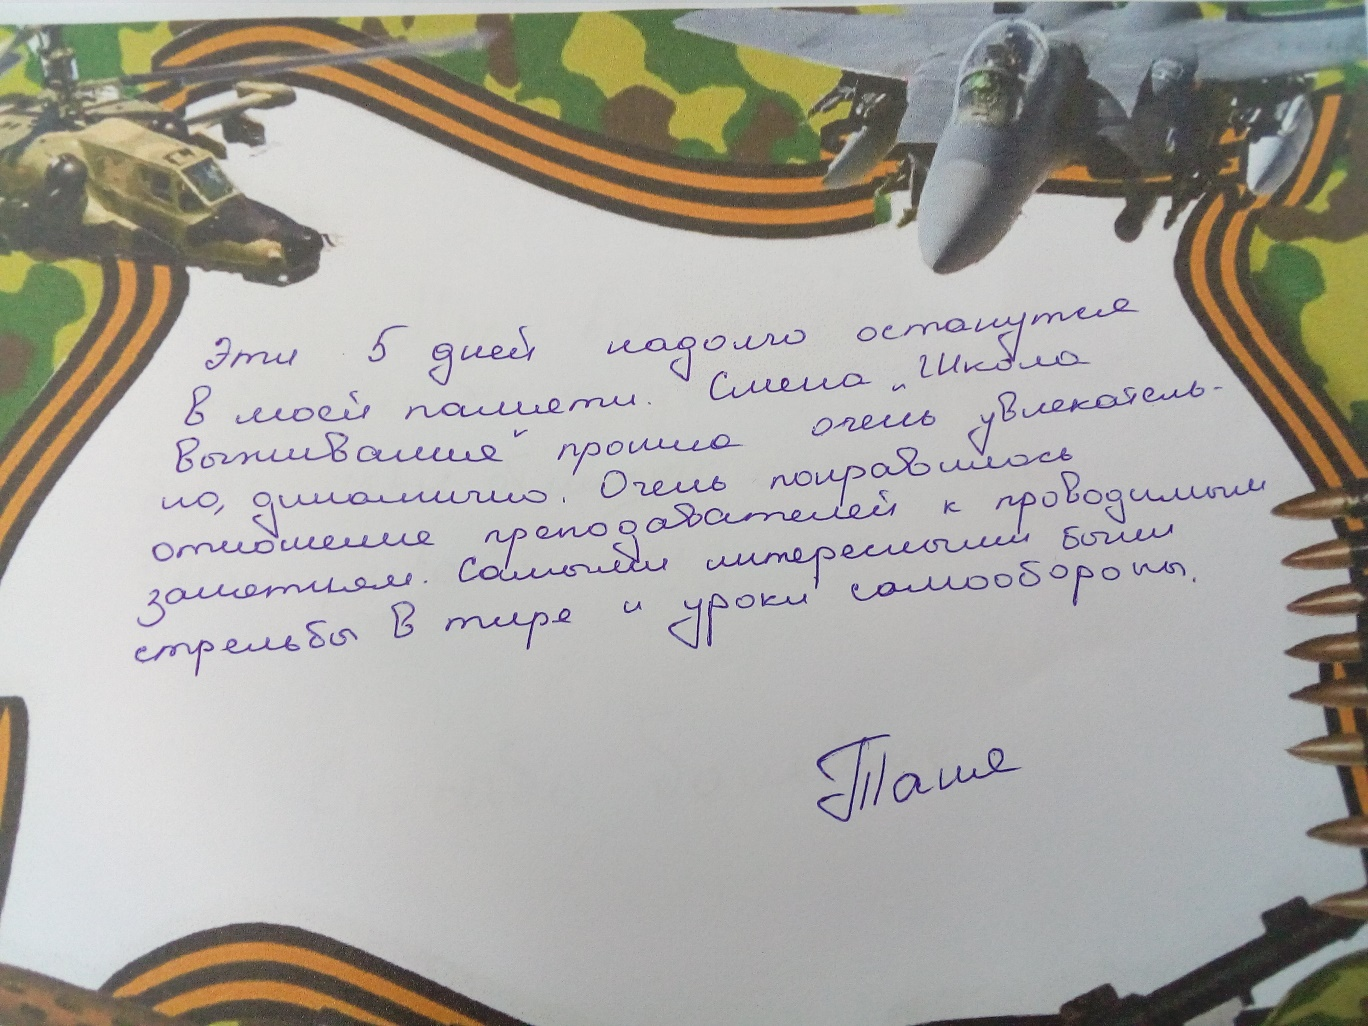 Эти 5 дней надолго останутся
в моей памяти. Смена „Школа
выживания" прошла очень увлекатель-
но, динамично. Очень понравилось
отношение преподавателей к проводимым
занятиям. Самыми интересными были
стрельбы в тире и уроки самообороны.
Таня